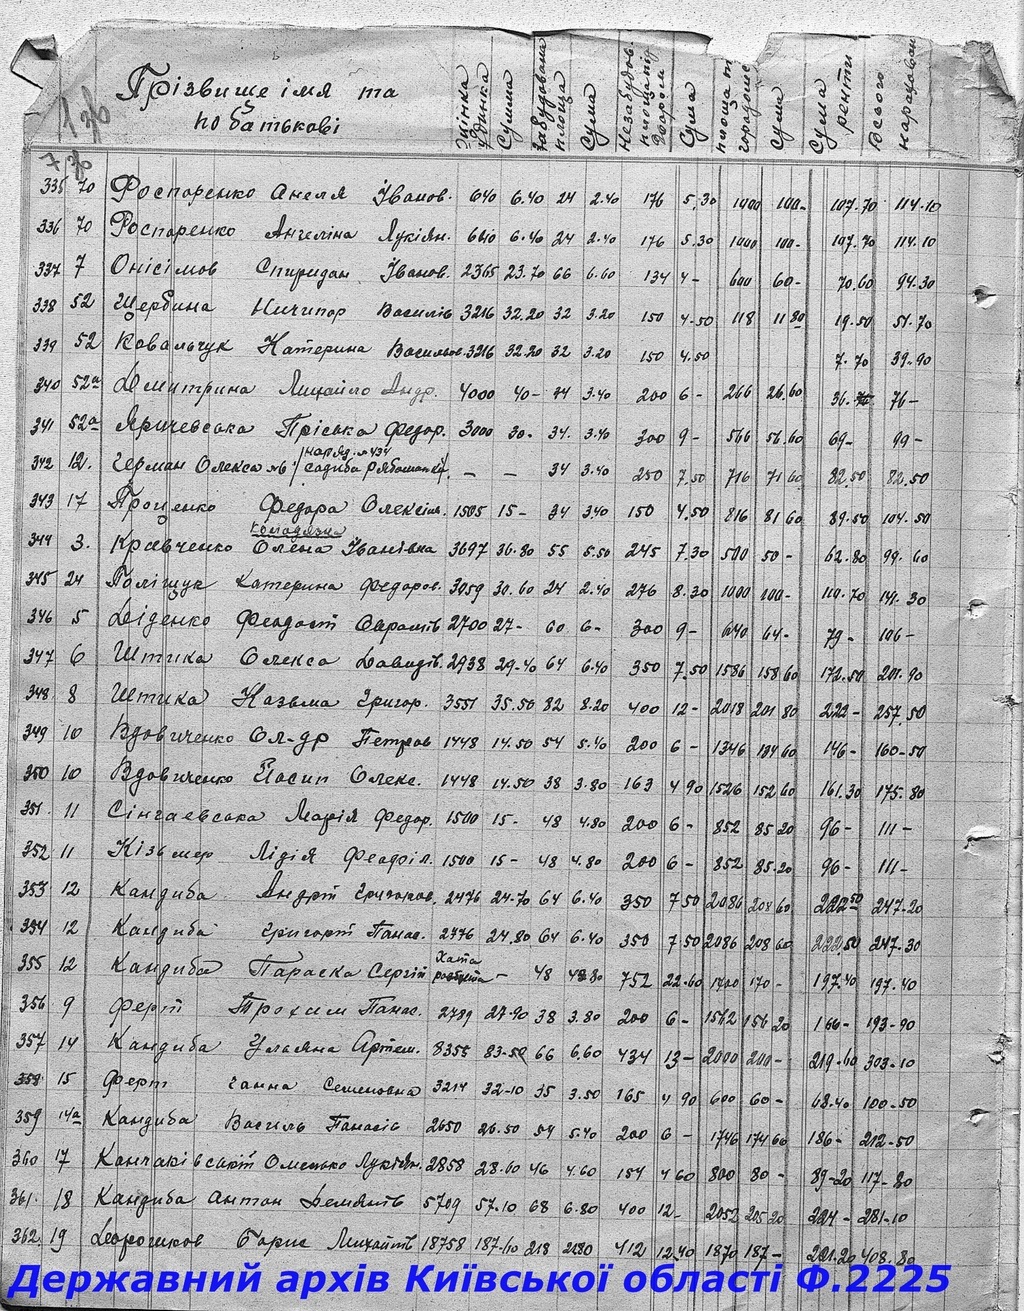 Прізвище імя та по батькові | оцінка будинка | Сумма | Забудована площа | Сума | Незабудов. площа під двором | Сума | площа городом | Сума | Сума ренти | Всього нараховано
136
7
335 70 Роспаренко Анеля Іванов. 640 6.40 24 2.40 176 5.30 1000 100- 107.70 114.10
336 70 Роспаренко Ангеліна Лукіян. 640 6.40 24 2.40 176 5.30 1000 100- 107.70 114.10
337 7 Онісімов Спиридан Іванов. 2365 23.70 66 6.60 134 4- 600 60- 70.60 94.30
338 52 Щербина Ничипор Василів 3216 32.20 32 3.20 150 4.50 118 11 80 19.50 51.70
339 52 Ковальчук Катерина Васильов. 3216 32.20 32 3.20 150 4.50 7.70 39.90
340 52а Дмитрина Михайло Андр. 4000 40- 34 3.40 200 6- 266 26.60 36. 76-
341 52а Яричевська Пріська Федор. 3000 30- 34. 3.40 300 9- 566 56.60 69- 99-
342 12. Герман Олекса садиба - - 34 3.40 250 7.50 716 71 60 82.50 82.50
343 17 Проценко Федора Олексіїв. 1505 15- 34 3.40 150 4.50 816 81 60 89.50 104.50
Колодязна
344 3. Кравченко Олена Іванівна 3697 36.80 55 5.50 245 7.30 500 50- 62.80 99.60
345 24 Поліщук Катерина Федоров. 3059 30.60 24 2.40 276 8.30 1000 100- 110.70 141.30
346 5 Діденко Феодосій 2700 27- 60 6- 300 9- 640 64- 79- 106-
347 6 Штика Олекса Давидів. 2938 29.40 64 6.40 350 7.50 1586 158 60 172.50 201.90
348 8 Штика Казьма Григор. 3551 35.50 82 8.20 400 12- 2018 201 80 222- 257.50
349 10 Вдовиченко Ол-др Петров 1448 14.50 54 5.40 200 6- 1346 134 60 146- 160-50
350 10 Вдовиченко Йосип Олекс. 1448 14.50 38 3.80 163 4 90 1526 152 60 161.30 175.80
351. 11 Сінгаевська Марія Федор. 1500 15- 48 4.80 200 6- 852 85 20 96- 111-
352 11 Кізьмер Лідія Феофіл. 1500 15- 48 4.80 200 6- 852 85.20 96- 111-
353 12 Кандиба Андрій Григоров. 2476 24.70 64 6.40 350 7 50 2086 208 60 222 50 247.20
354 12 Кандиба Григорій Панас. 2476 24.80 64 6.40 350 7 50 2086 208 60 222.50 247.30
355 12 Кандиба Параска Сергій Хата - 48 4.80 752 22.60 1700 170- 197.40 197.40
356 9 Ферт Трохим Панас. 2789 27.90 38 3.80 200 6- 1562 156 20 166- 193-90
357 14 Кандиба Уляяна Артем. 8355 83-50 66 6.60 434 13- 2000 200- 219.60 303-10
358 15 Ферт Ганна Семеновна 3214 32-10 35 3.50 165 4 90 600 60- 68.40 100-50
359 14а Кандиба Василь Панасів 2650 26.50 54 5.40 200 6- 1746 174 60 186- 212-50
360 17 Омелько Лукіян. 2858 28.60 46 4.60 154 4 60 800 80- 89-20 117-80
361. 18 Кандиба Антон Демянів 5709 57.10 68 6.80 400 12- 2052 205 20 224- 281-10
362. 19 Дорошков Борис Михайлів 18758 187-60 218 21.80 412 12.40 1870 187- 221.20 408.80
Державний архів Київської області Ф.2225